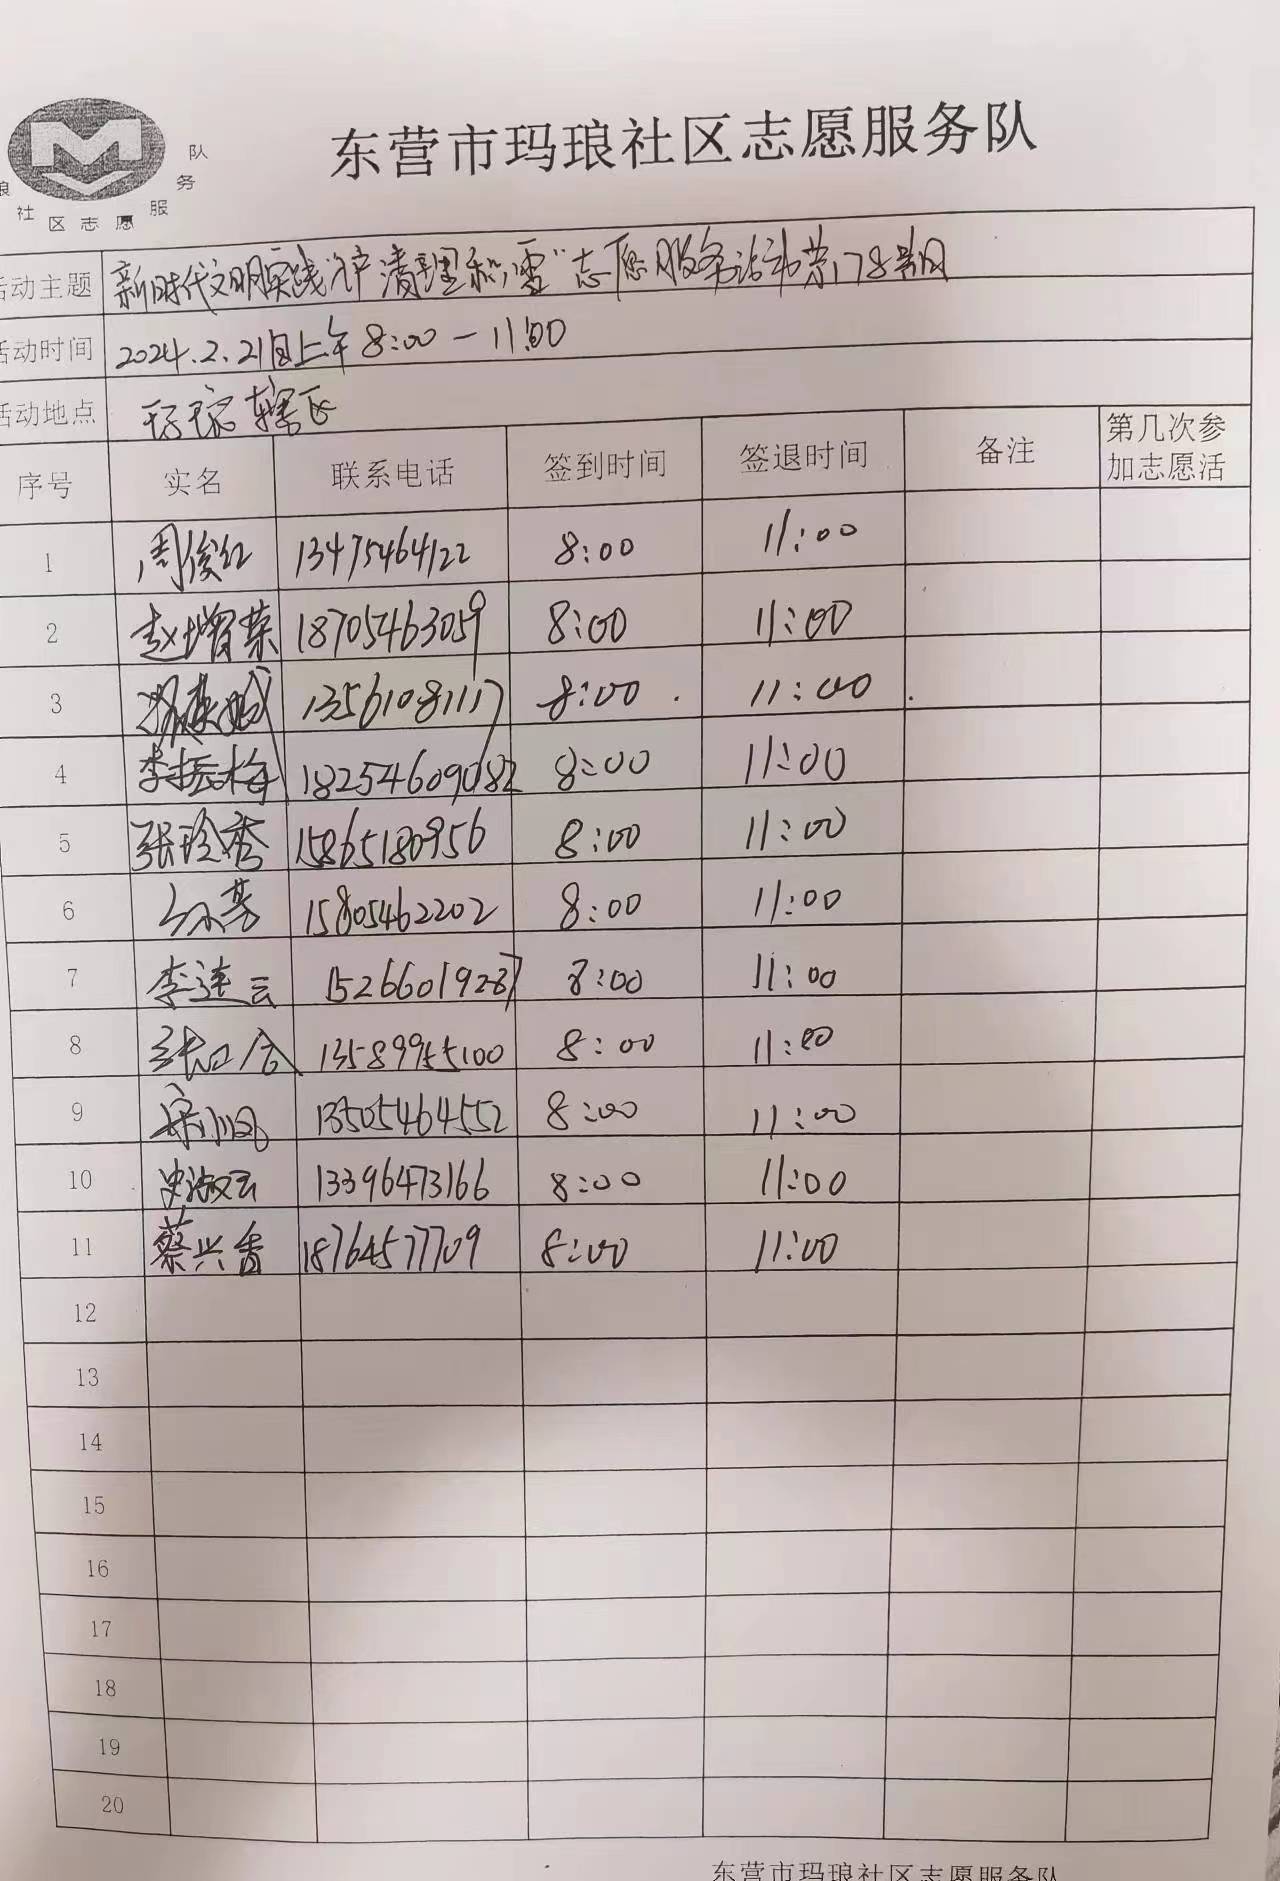 东营市玛琅社区志愿服务队
琅社区志愿服务队
活动主题 新时代文明实践"铲清理积雪"志愿服务活动第178期
活动时间 2024.2.21日上午8:00—11:00
活动地点 玛琅辖区
序号 实名 联系电话 签到时间 签退时间 备注 第几次参
加志愿活
1 周俊红 13475464122 8:00 11:00
2 赵增荣 18705463059 8:00 11:00
3 13561081117 8:00 11:00
4 李振梅 18254609082 8:00 11:00
5 张玲秀 15865180956 8:00 11:00
6 孙芳 15805462202 8:00 11:00
7 李连云 15266019287 8:00 11:00
8 13589955100 8:00 11:00
9 宋小凤 13505464552 8:00 11:00
10 史淑云 13396473166 8:00 11:00
11 蔡兴香 18764577709 8:00 11:00
12
13
14
15
16
17
18
19
20
东营市玛琅社区志愿服务队